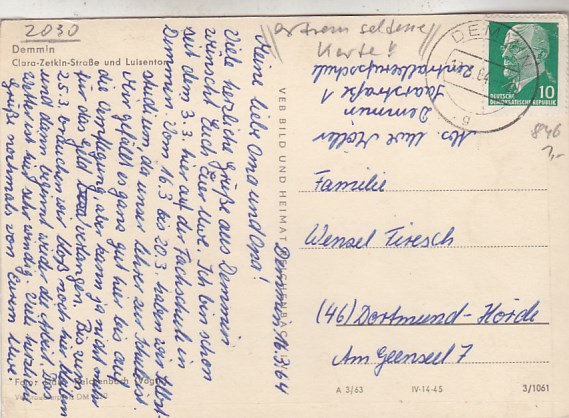 2030
extrem seltene
Karte!
Demmin
Clara-Zetkin-Straße und Luisentor
Demmin, 16.3.64
Meine liebe Oma und Opa!
Viele herzliche Grüße aus Demmin
wünscht Euch Euer Uwe. Ich bin schon
seit dem 3.3. hier auf der Fachschule in
Demmin. Vom 16.3 bis 20.3. haben wir Selbst-
studium da unser Lehrer zur Schule ist.
Mir gefällt es ganz gut hier bis auf
die Verpflegung, aber kann ja nicht mehr
für das Geld verlangen. Bis zum
25.3. brauchen wir bloß noch hier
und dann beginnt wieder die Arbeit. Das
Wetter ist hier sehr windig. Viele herzliche
Grüße nochmals von Eurem Uwe
Foto: Reichenbach (Vogtl)
DM
VEB BILD UND HEIMAT REICHENBACH
Abs. Uwe Möller
Demmin
Saarstraße 1
Zentralberufsschule
DEMMIN
DEUTSCHE
DEMOKRATISCHE REPUBLIK
10
846
3,-
Familie
Wenzel Firesch
(46) Dortmund-Hörde
Am Geenseel 7
A 3/63
IV-14-45
3/1061